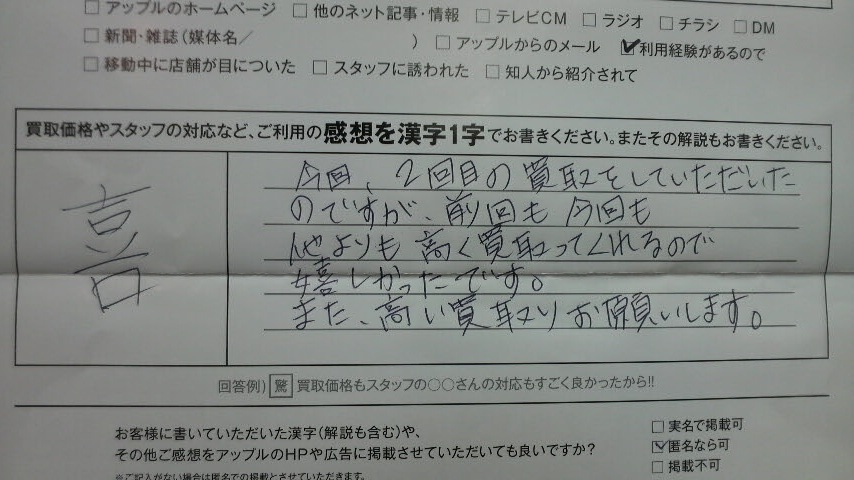 □ アップルのホームページ □ 他のネット記事・情報 □ テレビCM □ ラジオ □ チラシ □ DM
□ 新聞・雑誌（媒体名／ ） □ アップルからのメール ☑ 利用経験があるので
□ 移動中に店舗が目についた □ スタッフに誘われた □ 知人から紹介されて
買取価格やスタッフの対応など、ご利用の感想を漢字1字でお書きください。またその解説もお書きください。
喜
今回、2回目の買取をしていただいた
のですが、前回も今回も
他よりも高く買取ってくれるので
嬉しかったです。
また、高い買取りお願いします。
回答例）驚 買取価格もスタッフの○○さんの対応もすごく良かったから!!
お客様に書いていただいた漢字（解説も含む）や、
その他ご感想をアップルのHPや広告に掲載させていただいても良いですか？
※ご記入がない場合は匿名での掲載とさせていただきます。
□ 実名で掲載可
☑ 匿名なら可
□ 掲載不可